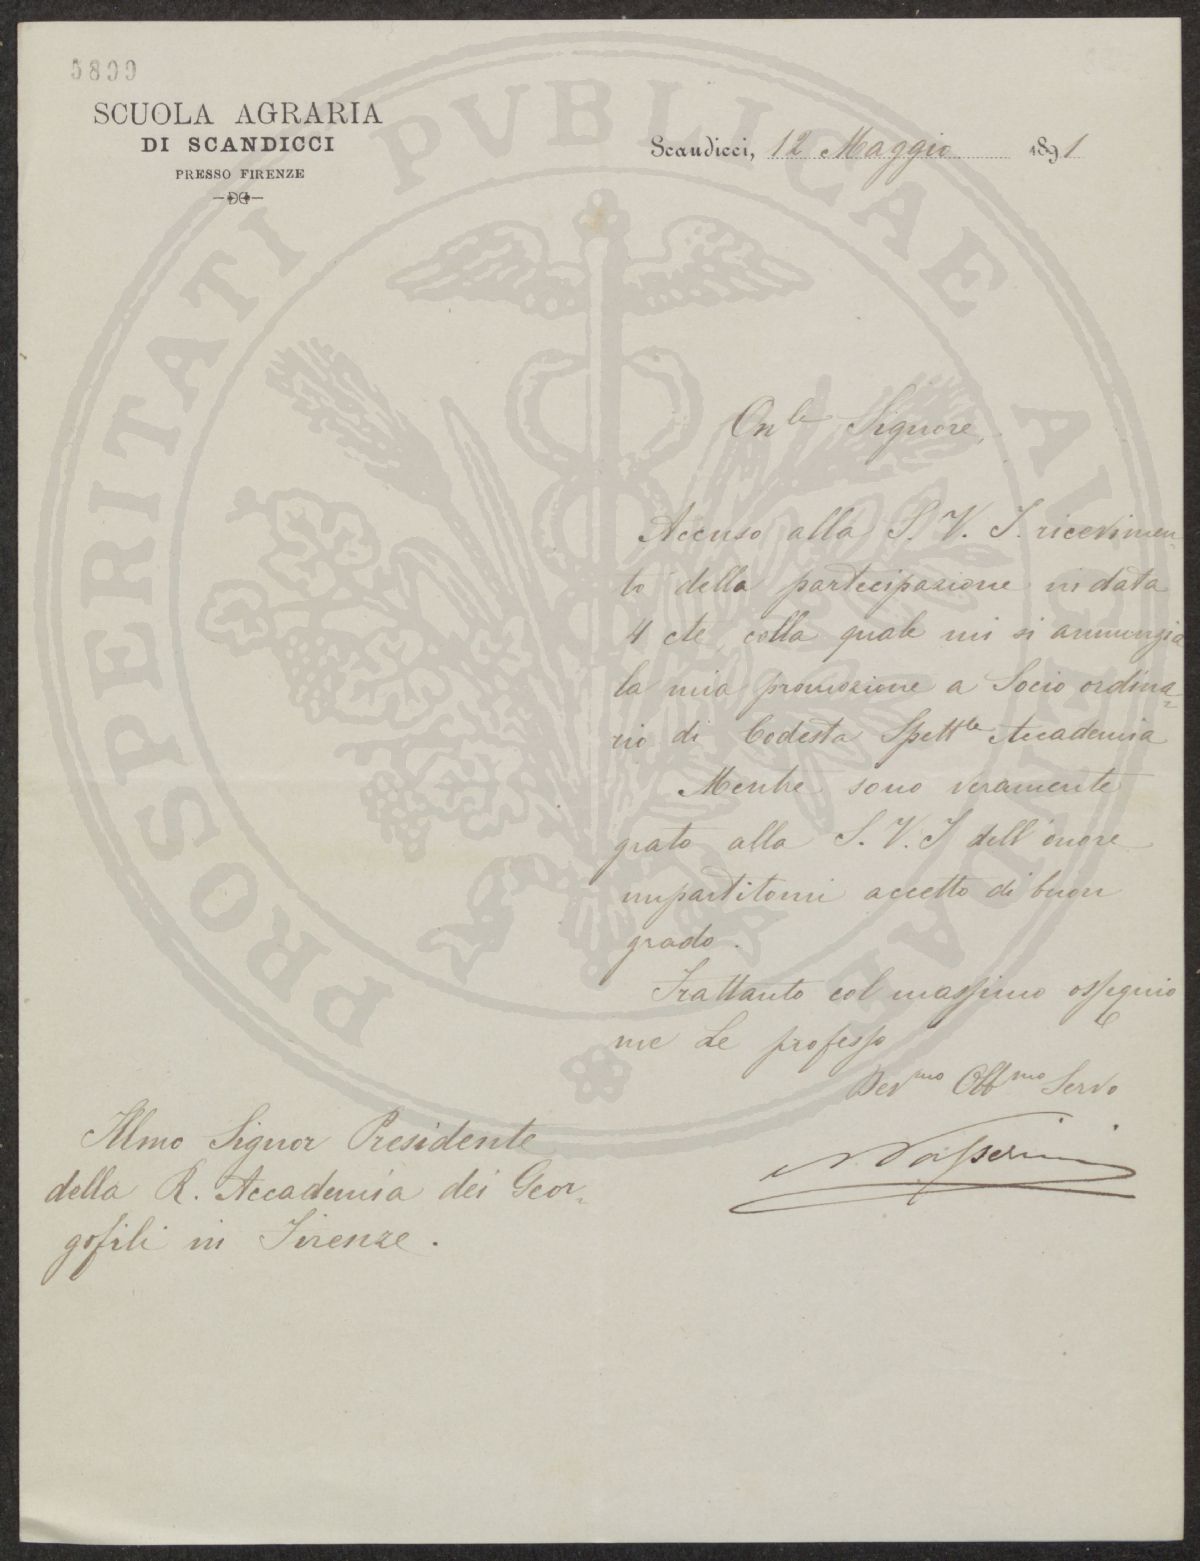 5899
SCUOLA AGRARIA
DI SCANDICCI
PRESSO FIRENZE
Scandicci, 12 Maggio 1891
PROSPERITATI PVBLICAE AVGENDAE
On.le Signore,
Accuso alla S. V. I. ricevimen-
to della partecipazione in data
4 cte, colla quale mi si annunzia
la mia promozione a Socio ordina-
rio di Codesta Spett.le Accademia
Mentre sono veramente
grato alla S. V. I dell'onore
impartitomi accetto di buon
grado.
Frattanto col massimo ossequio
me Le professo
Dev.mo Obb.mo Servo
N Passerini
Illmo Signor Presidente
della R. Accademia dei Geor-
gofili in Firenze.